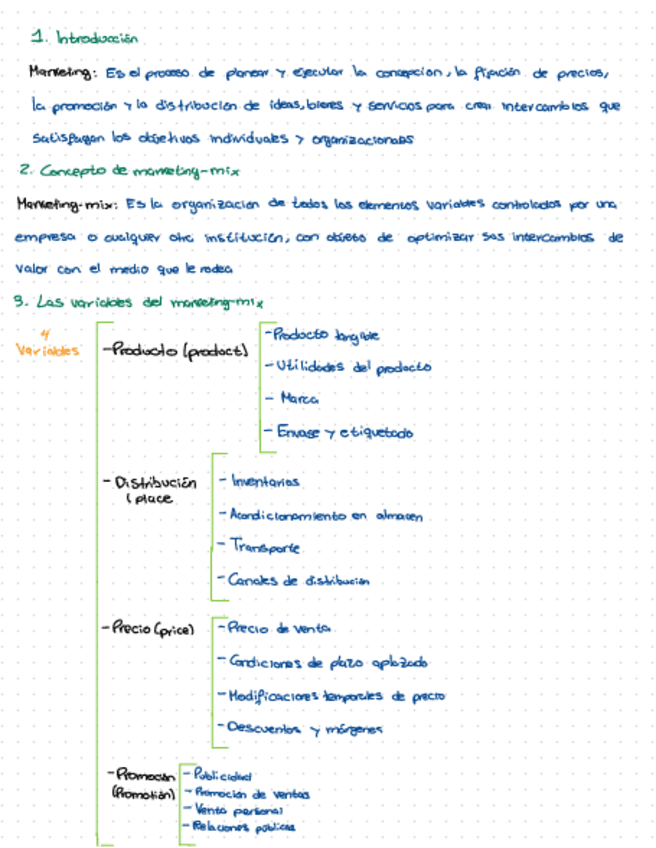 1. Introducción
Marketing: Es el proceso de planear y ejecutar la concepcion, la fijación de precios,
la promoción y la distribución de ideas, bienes y servicios para crear intercambios que
satisfagan los objetivos individuales y organizacionales
2. Concepto de marketing-mix
Marketing-mix: Es la organización de todos los elementos variables controlados por una
empresa o cualquier otra institución, con objeto de optimizar sus intercambios de
valor con el medio que le rodea
3. Las variables del marketing-mix
4
Variables
-Producto (product)
-Producto tangible
-Utilidades del producto
- Marca
- Envase y etiquetado
- Distribución
(place
- Inventarios
- Acondicionamiento en almacen
- Transporte
- Canales de distribución
-Precio (price)
-Precio de venta
-Condiciones de plazo aplazado
-Modificaciones temporales de precio
-Descuentos y márgenes
-Promoción
(Promotión)
- Publicidad
- Promoción de ventas
- Venta personal
- Relaciones públicas